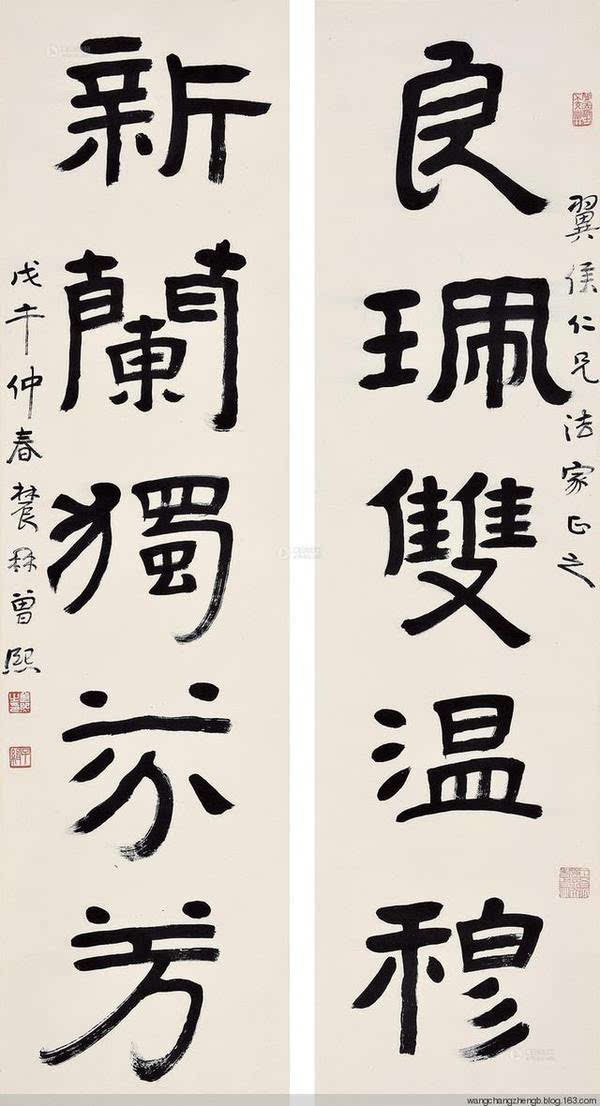 翼侯仁兄法家正之
良珮雙温穆
新蘭獨芬芳
戊午仲春農髯曾熙
wangchangzhengb.blog.163.com